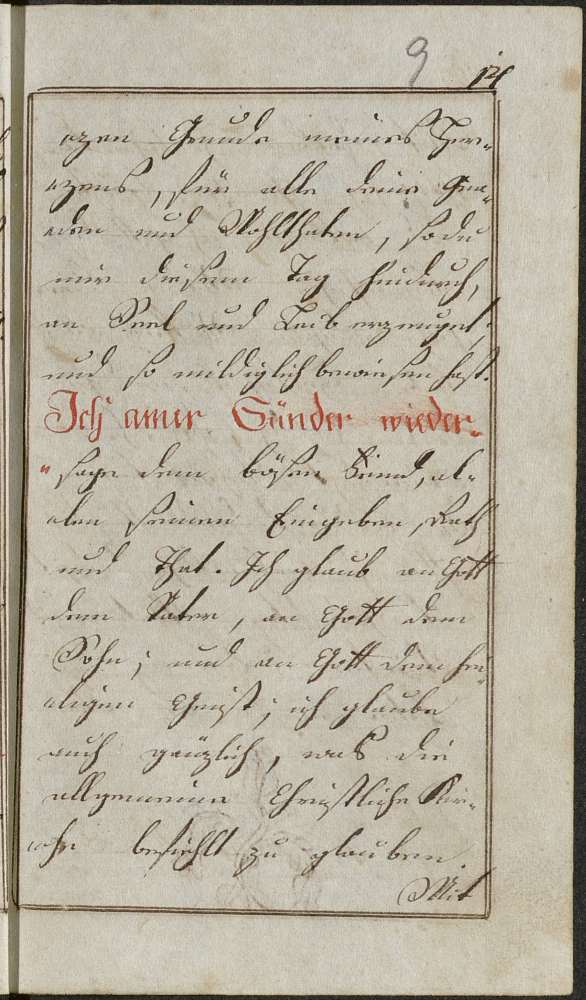 9
tzen Grunde meines Her-
tzens, für alle deine Gna-
aden und Wohlthaten, so du
mir diesem Tag hindurch,
an Seel und Leib erzeuget,
und so mildiglich bewiesen hast.
Ich armer Sünder wieder-
"sage dem bösen Feind, al-
alen seinen Eingeben, Rath
und That. Ich glaub an Gott
dem Vater, an Gott dem
Sohn; und an Gott dem hei-
aligen Geist; ich glaube
auch gänzlich, was die
allgemeine Christliche Kir-
che befiehlt zu glauben.
Mit